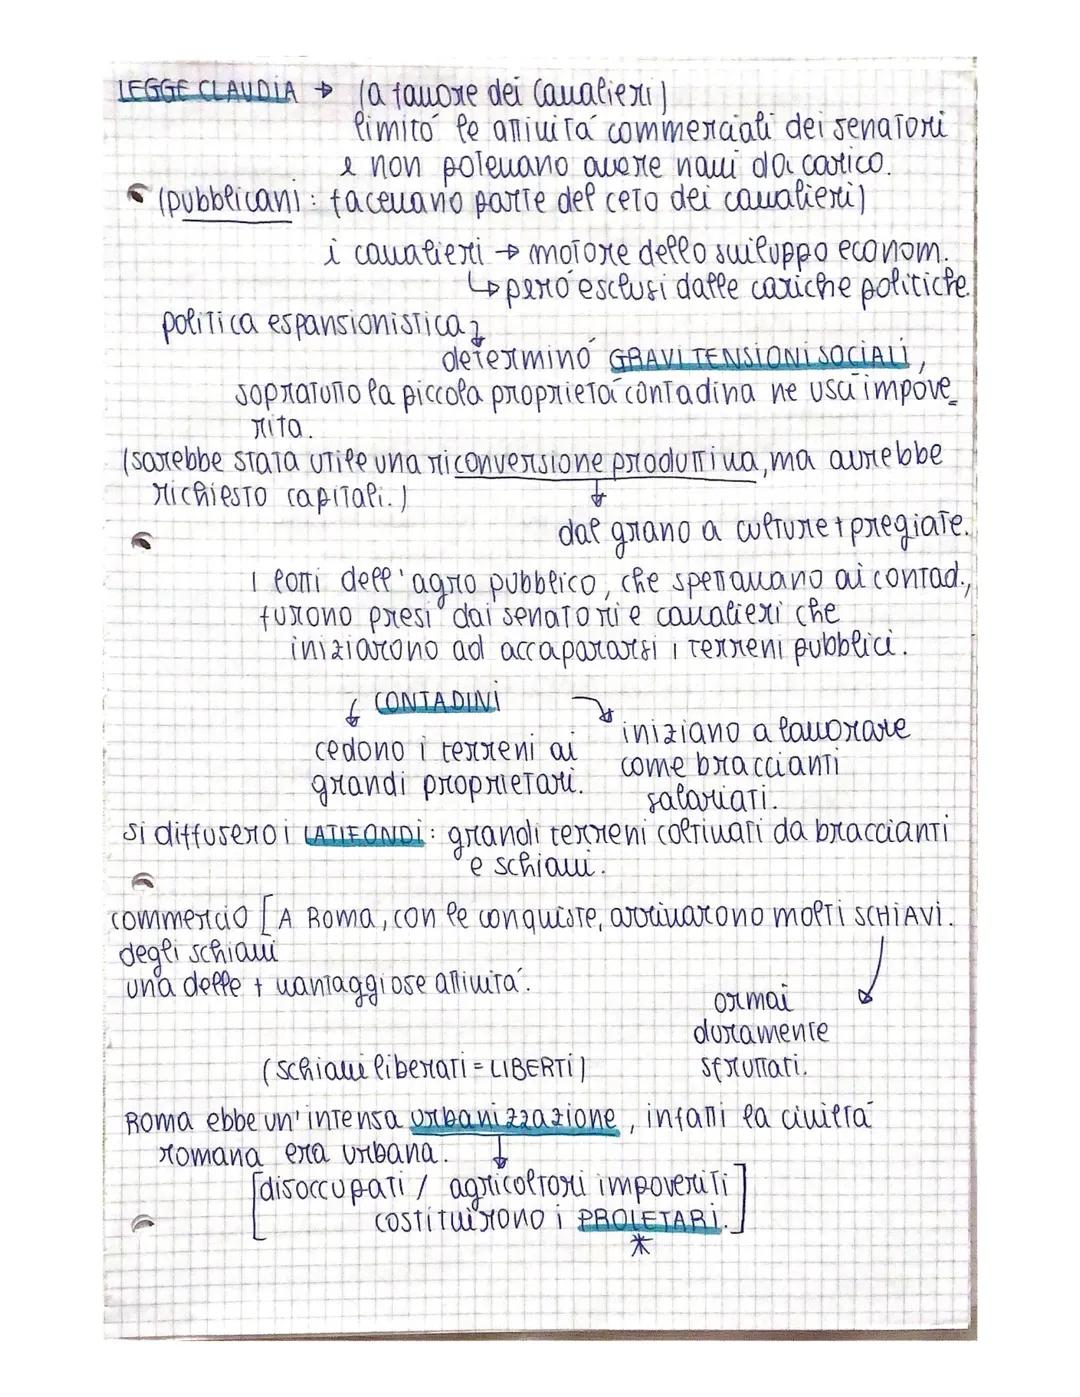 LEGGE CLAUDIA → (a favore dei cavalieri)
limitò le attività commerciali dei senatori
e non potevano avere navi da carico.
(pubblicani: facevano parte del ceto dei cavalieri)
i cavalieri → motore dello sviluppo econom.
↳ però esclusi dalle cariche politiche.
politica espansionistica
determinò GRAVI TENSIONI SOCIALI,
sopratutto la piccola proprietà contadina ne uscì impove_
rita.
(sarebbe stata utile una riconversione produttiva, ma avrebbe
richiesto capitali.)
dal grano a culture + pregiate.
I lotti dell'agro pubblico, che spettavano ai contad.,
furono presi dai senatori e cavalieri che
iniziarono ad accapararsi i terreni pubblici.
CONTADINI
cedono i terreni ai
grandi proprietari.
iniziano a lavorare
come braccianti
salariati.
si diffusero i LATIFONDI: grandi terreni coltivati da braccianti
e schiavi.
commercio [A Roma, con le conquiste, arrivarono molti SCHIAVI.
degli schiavi
una delle + vantaggiose attività.
ormai
duramente
sfruttati.
(schiavi liberati = LIBERTI)
Roma ebbe un'intensa urbanizzazione, infatti la civiltà
romana era urbana.
[disoccupati / agricoltori impoveriti
costituirono i PROLETARI.]
*